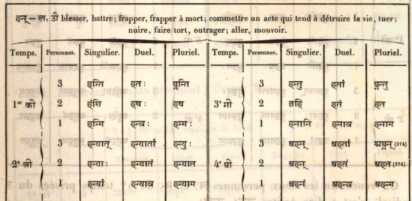 हन् — ल. औ blesser, battre; frapper, frapper à mort; commettre un acte qui tend à détruire la vie, tuer;
nuire, faire tort, outrager; aller, mouvoir.
Temps. Personnes. Singulier. Duel. Pluriel. Temps. Personnes. Singulier. Duel. Pluriel.
3 हन्ति हतः घ्नन्ति 3 हन्तु हतां घ्नन्तु
1er की 2 हंसि हथः हथ 3e गी 2 जहि हतं हत
1 हन्मि हन्वः हन्मः 1 हनानि हनाव हनाम
3 हन्यात् हन्यातां हन्युः 3 अहन् अहतां अघ्नन् (374)
2e खी 2 हन्याः हन्यातं हन्यात 4e घी 2 अहन् अहतं अहत (374)
1 हन्यां हन्याव हन्याम 1 अहनं अहन्व अहन्म